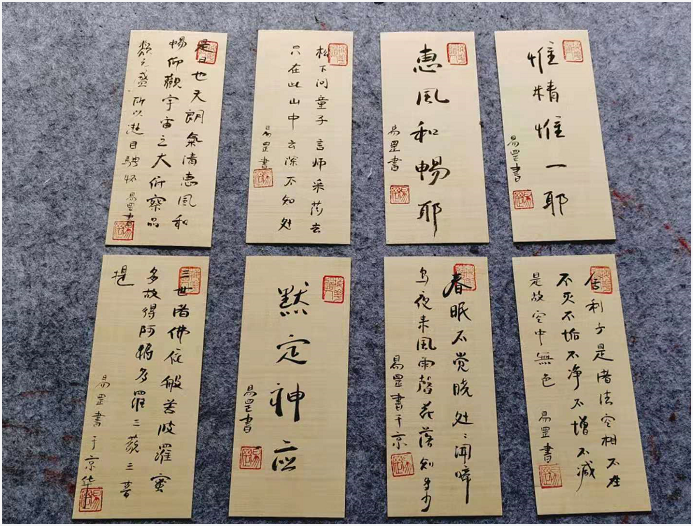 是日也天朗氣清惠風和
暢仰觀宇宙之大俯察品
類之盛所以遊目騁怀 易罡書
松下问童子言师采药去
只在此山中云深不知处
易罡書
惠風和暢耶
易罡書
惟精惟一耶
易罡書
三世诸佛依般若波羅蜜
多故得阿耨多羅三藐三菩
提
易罡書于京华
默定神应
易罡書
春眠不觉晓处々闻啼
鸟夜来風雨聲花落知多少
易罡書于京
舍利子是诸法空相不生
不灭不垢不净不增不减
是故空中無色 易罡書